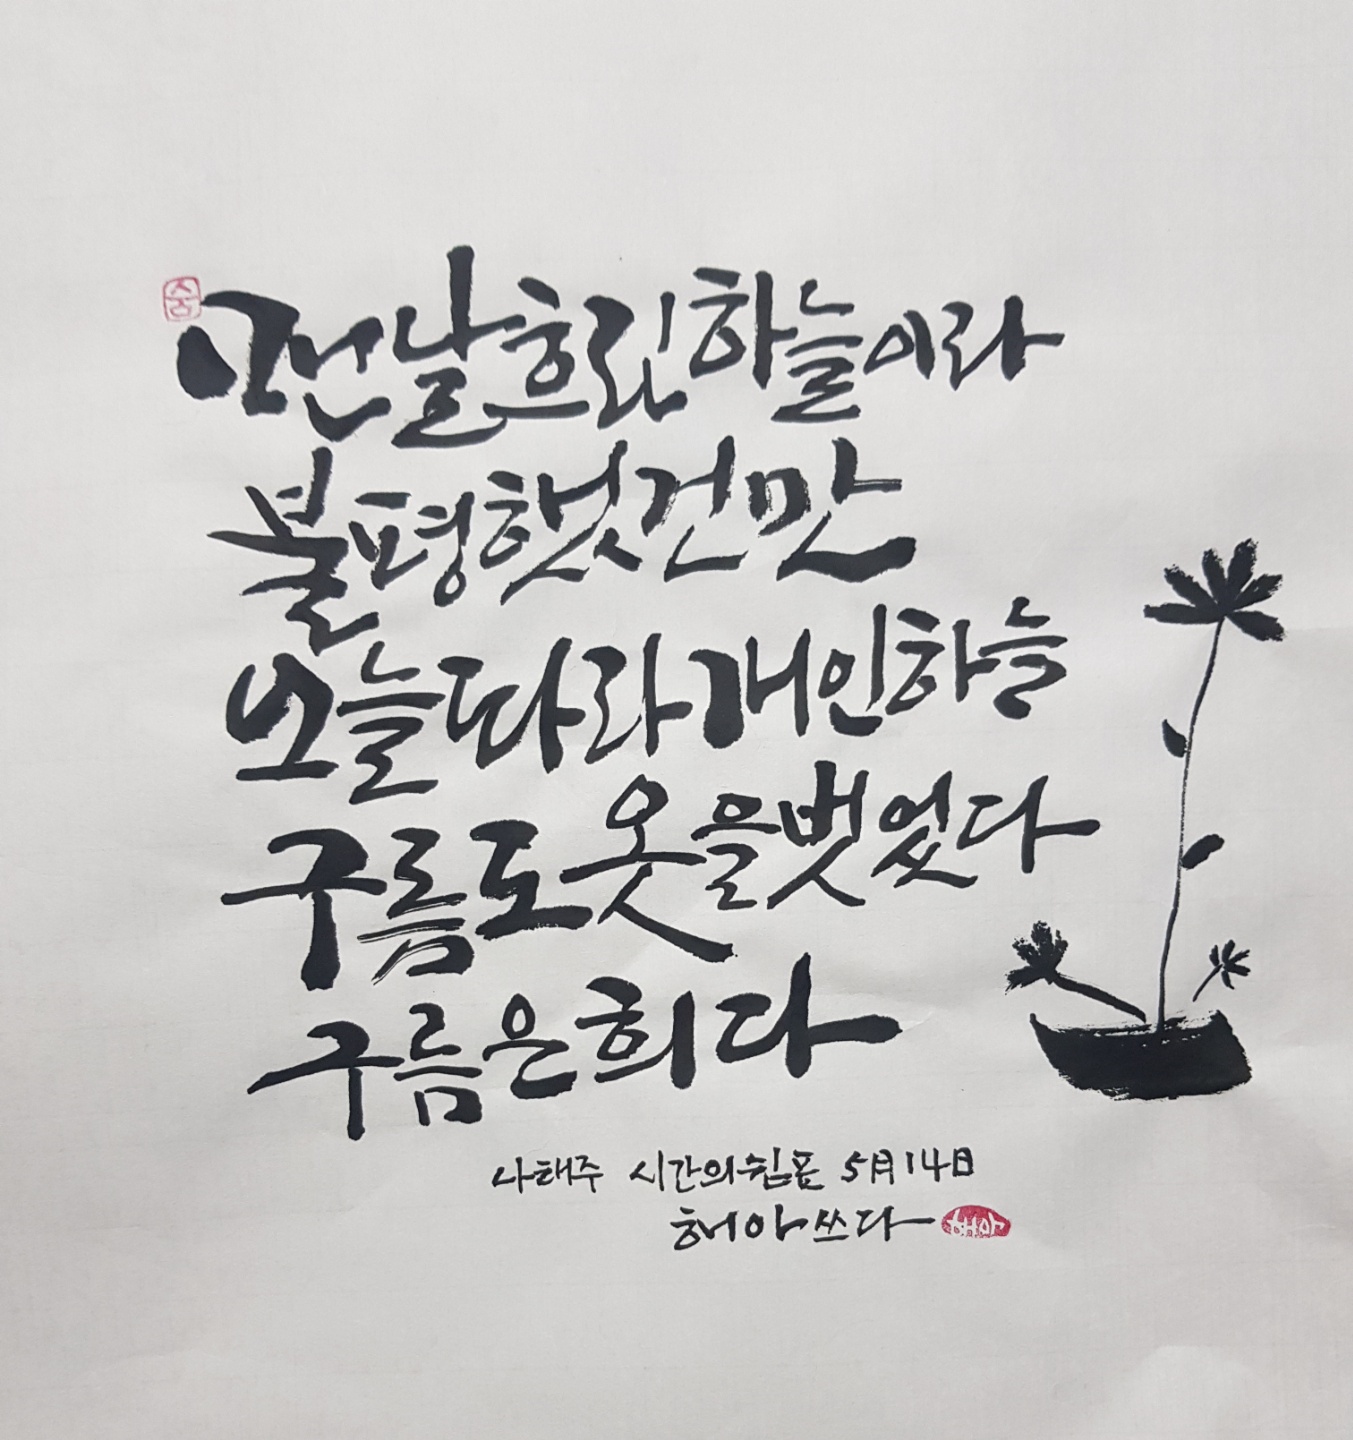 숨
맨날 흐린 하늘이라
불평했건만
오늘따라 개인 하늘
구름도 옷을 벗었다
구름은 희다
나태주 시간의쉼표 5月14日
해아쓰다 해아